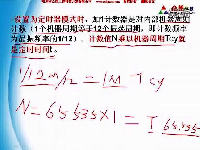 设置为定时器模式时，加1计数器是对内部机器周期
计数（1个机器周期等于12个振荡周期，即计数频率
为晶振频率的1/12）。计数值N乘以机器周期Tcy就
是定时时间t。
1/12 m/2 = 1M Tcy
N = 65535 X 1 = T 65.535